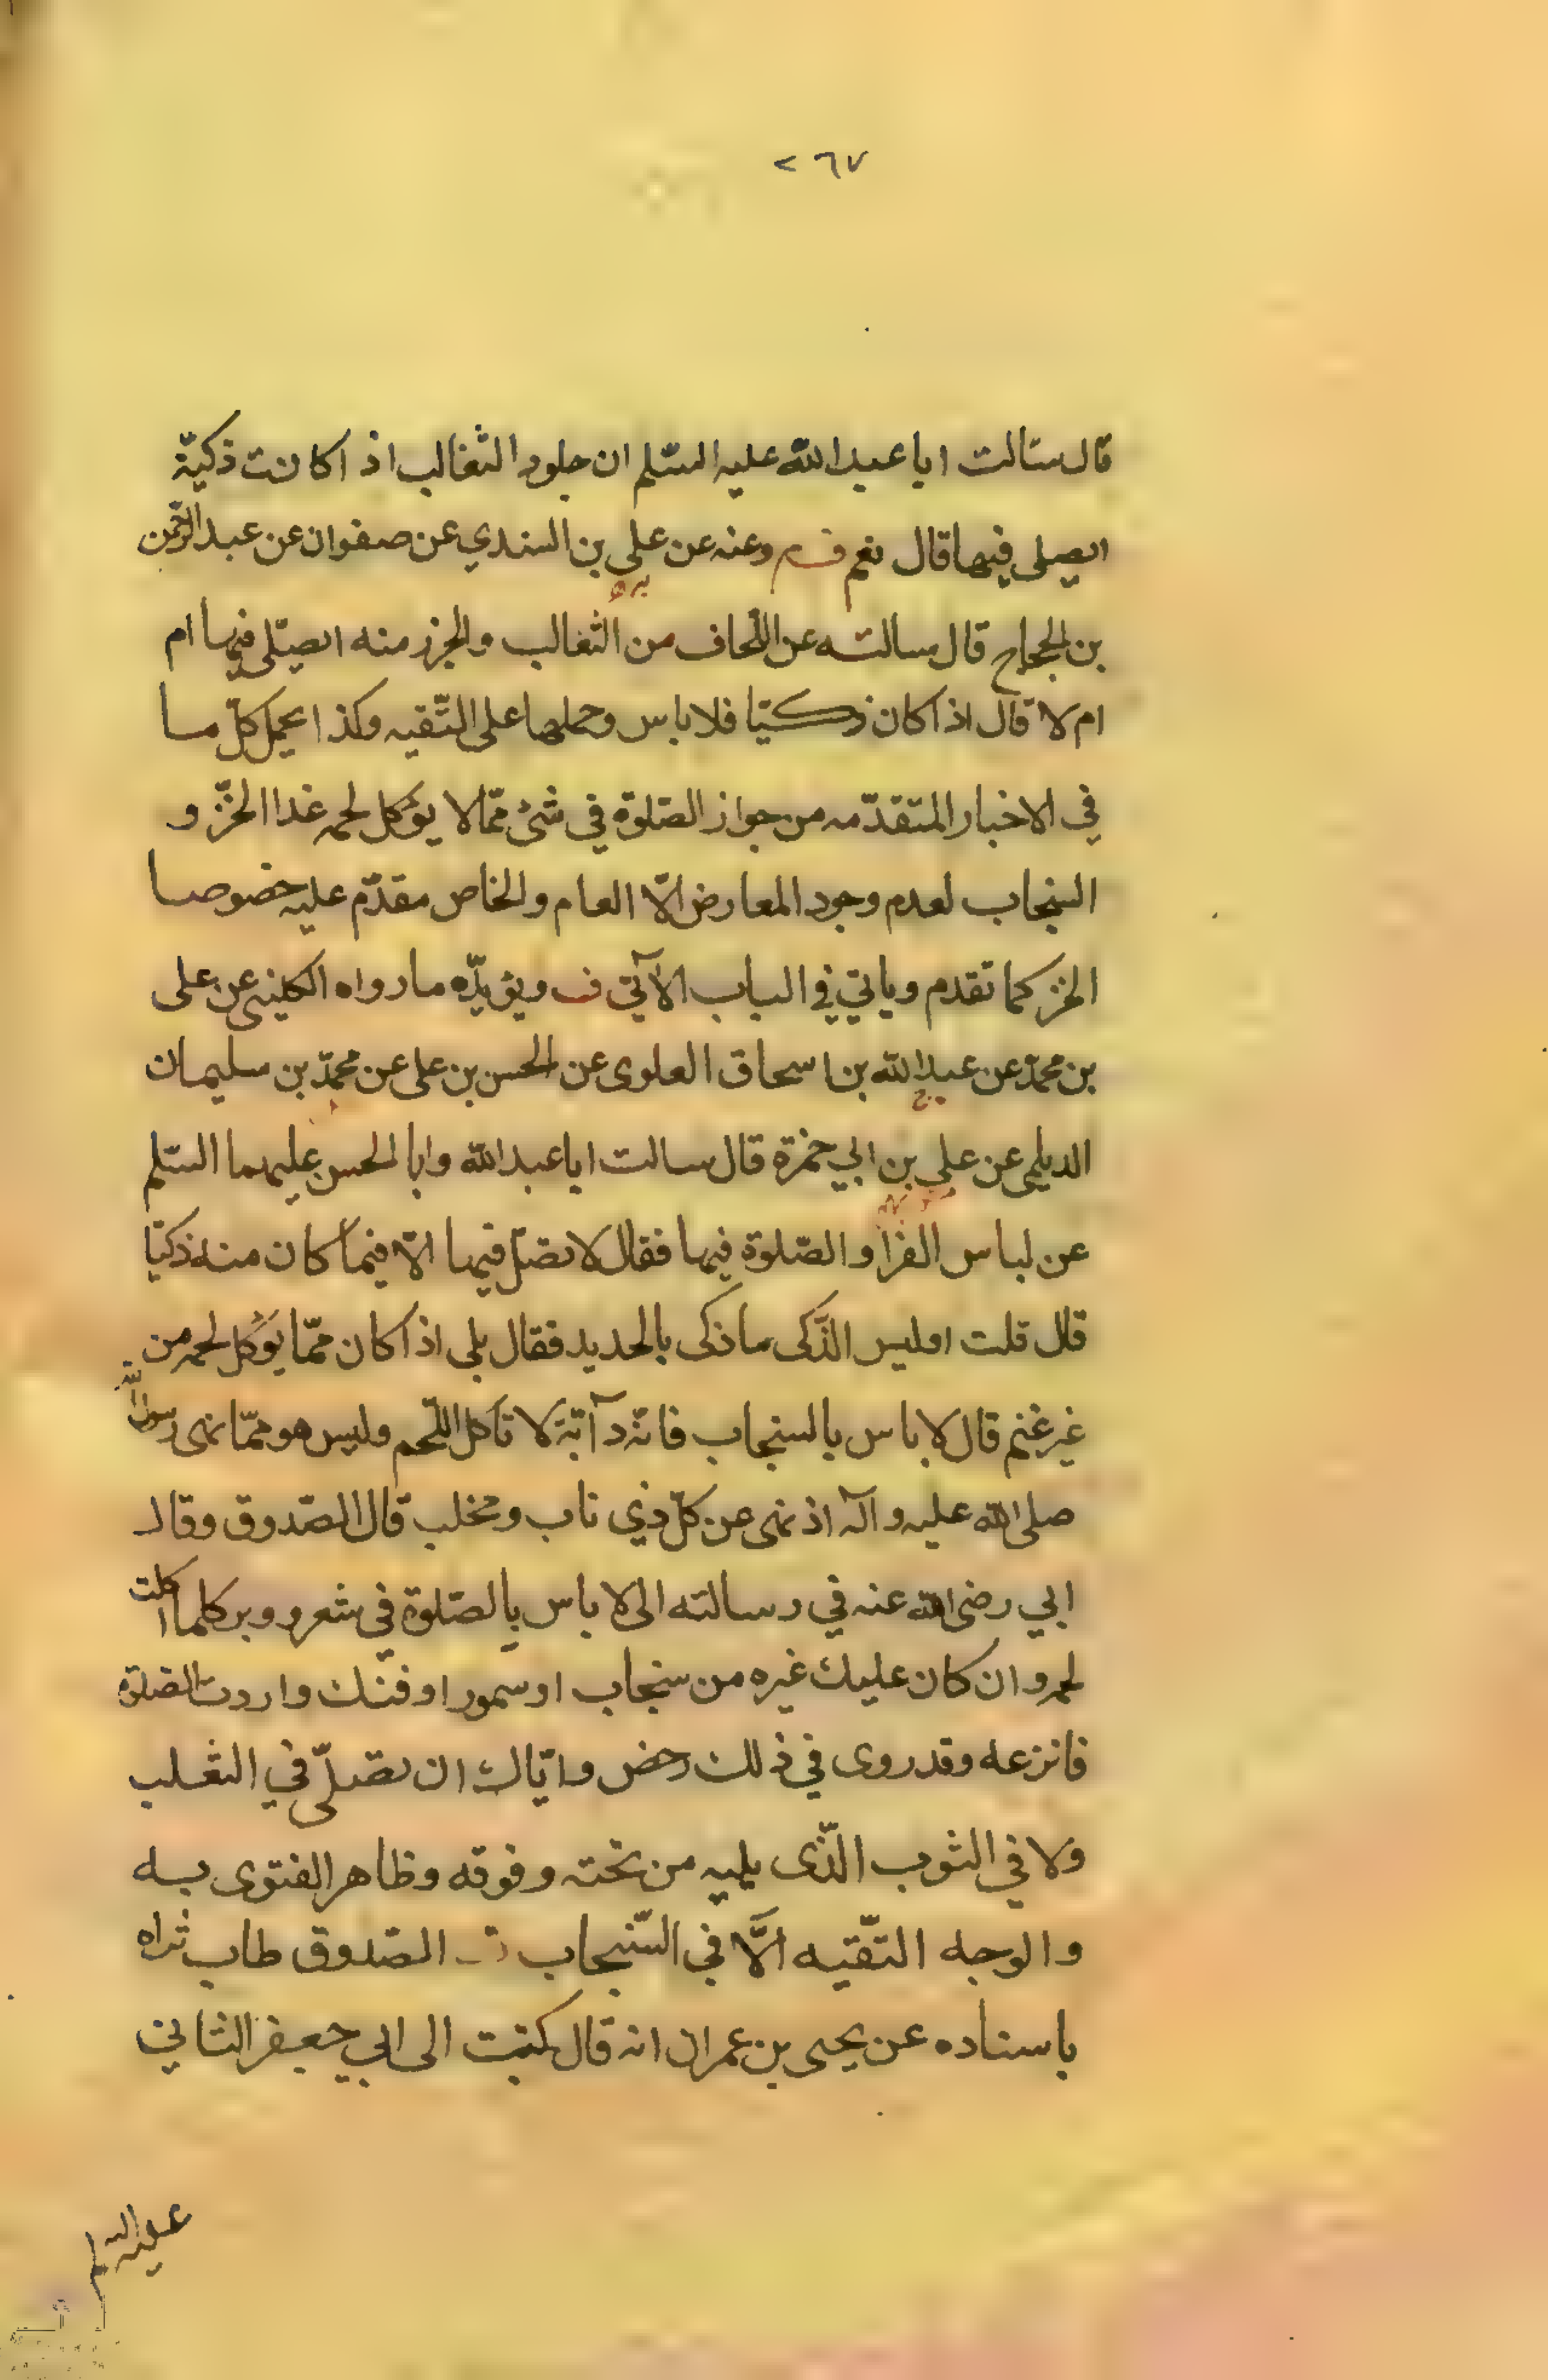 ٢٦٧
قال سئالت ابا عبد الله عليه السّلم ان جلود الثعالب اذا كانت ذكيّة
ايصلى فيها قال نعم وعنه عن على بن السندي عن صفوان عن عبد الرّحمن
بن الحجاج قال سالته عن اللّحاف من الثعالب والجرز منه ايصلّى فيها ام
ام لا قال اذا كان ذكيّا فلا باس وحملها على التّقيه وكذا يحمل كلّ ما
في الاخبار المتقدّمه من جواز الصّلوة في شئ ممّا لا يؤكل لحمه غدا الخزّ و
السنجاب لعدم وجود المعارض الّا العام والخاص مقدّم عليه خصوصا
الخز كما تقدم وياتي في الباب الآتي ف ويؤيّده ما رواه الكلينى عن على
بن محمّد عن عبد الله بن اسحاق العلوى عن الحسن بن على عن محمّد بن سليمان
الديلمى عن على بن ابي حمزة قال سالت ابا عبد الله وابا الحسن عليهما السّلم
عن لباس الفرا والصّلوة فيها فقال لا تصلّ فيها الّا فيما كان منه ذكيّا
قال قلت اوليس الذّكى ما ذكى بالحديد فقال بلى اذا كان ممّا يؤكل لحمه من
غير غنم قال لا باس بالسنجاب فانّه دآبّة لا تأكل اللّحم وليس هو ممّا نهى رسول الله
صلى الله عليه وآله اذ نهى عن كلّ ذي ناب ومخلب قال الصّدوق وقال
ابي رضى الله عنه في رسالته الى لا باس بالصّلوة في شعر ووبر كلما اكلت
لحمه وان كان عليك غيره من سنجاب او سمور او فنك واردت الصّلوة
فانزعه وقد روى في ذلك رخص وايّاك ان تصلّى في الثعلب
ولا في الثوب الّذى يليه من تحته وفوقه وظاهر الفتوى به
والوجه التّقيه الّا في السّنجاب الصّدوق طاب ثراه
باسناده عن يحيى بن عمران انه قال كتبت الى ابي جعفر الثاني
عليه السلم